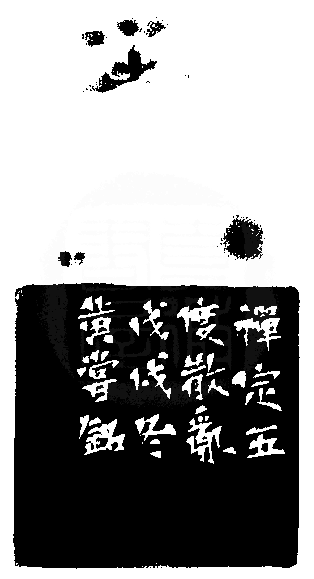 禪定五
度散亂
戊戌冬
黃嘗銘